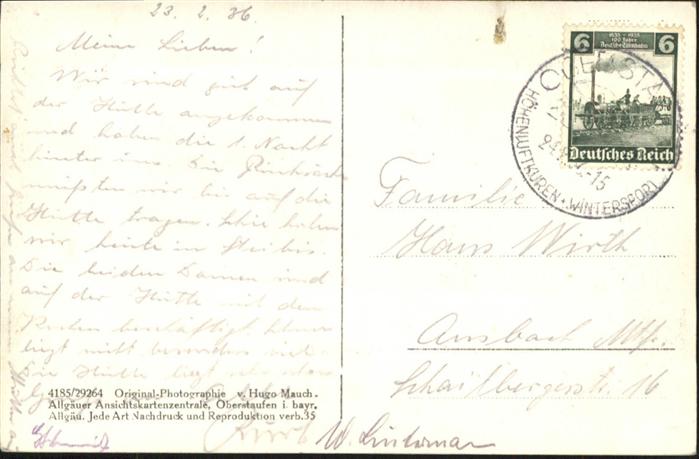 23. 2. 36
Meine Lieben!
Wir sind gut auf
der Hütte angekommen
und haben die 1. Nacht
hinter uns. Die Rucksäcke
mußten wir bis auf die
Hütte tragen. Schie holen
wir heute in Steibis.
Die beiden Damen sind
auf der Hütte mit dem
Kochen beschäftigt. Schnee
liegt nicht besonders viel.
Die Hütte liegt
4185/29264 Original-Photographie v. Hugo Mauch.
Allgäuer Ansichtskartenzentrale, Oberstaufen i. bayr.
Allgäu. Jede Art Nachdruck und Reproduktion verb. 35
Kurt
6 1835-1935 6
100 Jahre
Deutsche Eisenbahn
Deutsches Reich
OBERSTA
HÖHENLUFTKUREN · WINTERSPORT
Familie
Hans Wirth
Ansbach Mfr.
16